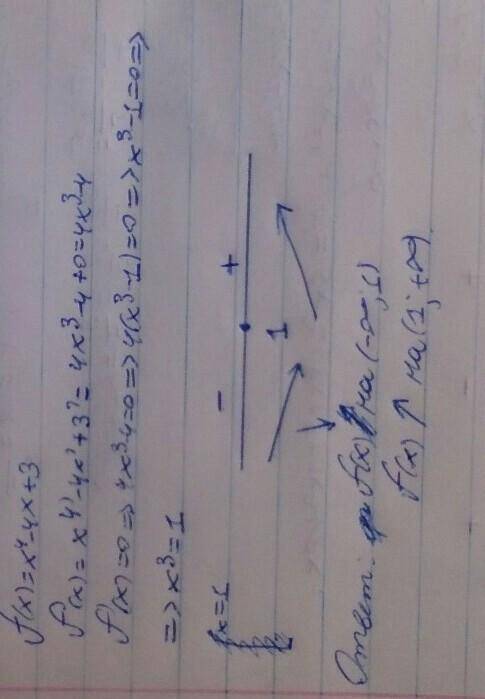 f(x)=x⁴-4x+3
f'(x)=x⁴'-4x'+3'=4x³-4+0=4x³-4
f'(x)=0=>4x³-4=0=>4(x³-1)=0=>x³-1=0=>
=>x³=1
x=1
- +
1
Ответ: f(x) на (-∞;1)
f(x) ↑ на (1;+∞)